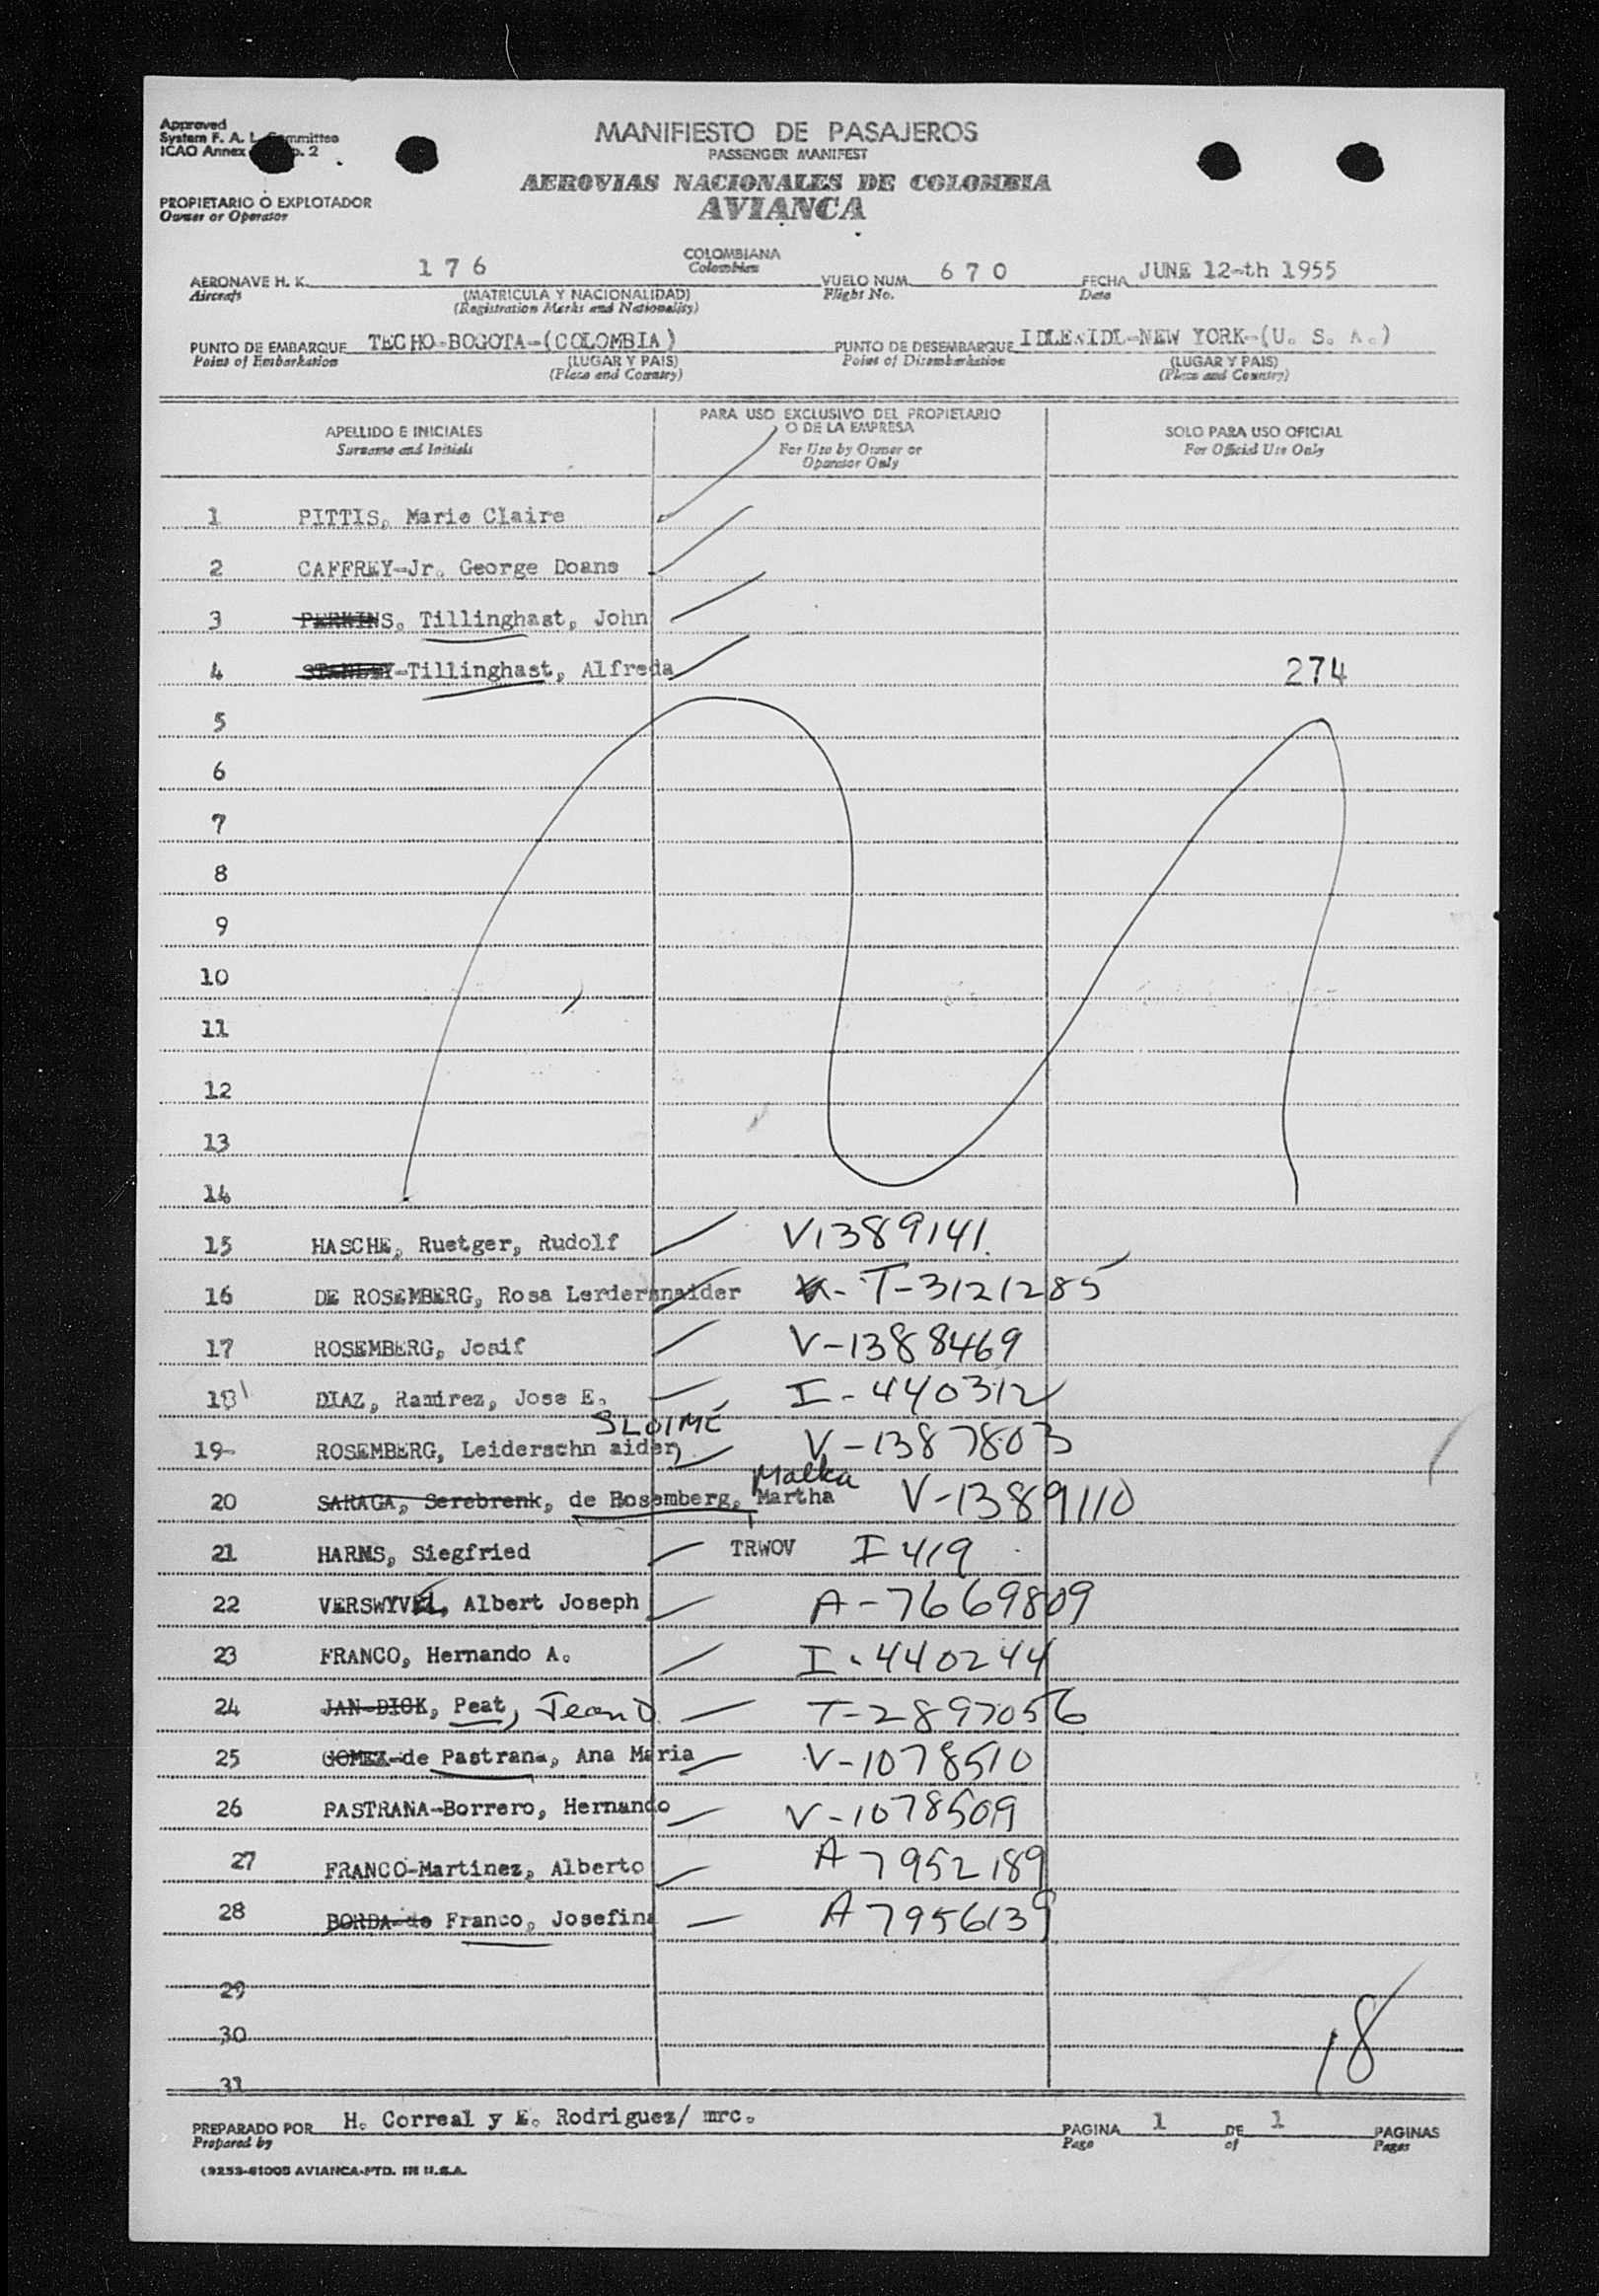 Approved
System F. A. L. Committee
ICAO Annex p. 2
MANIFIESTO DE PASAJEROS
PASSENGER MANIFEST
AEROVIAS NACIONALES DE COLOMBIA
AVIANCA
PROPIETARIO O EXPLOTADOR
Owner or Operator
COLOMBIANA
Colombian
AERONAVE H. K. 176
Aircraft
(MATRICULA Y NACIONALIDAD)
(Registration Marks and Nationality)
VUELO NUM. 670
Flight No.
FECHA JUNE 12-th 1955
Date
PUNTO DE EMBARQUE TECHO-BOGOTA-(COLOMBIA)
Point of Embarkation
(LUGAR Y PAIS)
(Place and Country)
PUNTO DE DESEMBARQUE IDLEWIDL-NEW YORK-(U. S. A.)
Point of Disembarkation
(LUGAR Y PAIS)
(Place and Country)
APELLIDO E INICIALES
Surname and Initials
PARA USO EXCLUSIVO DEL PROPIETARIO
O DE LA EMPRESA
For Use by Owner or
Operator Only
SOLO PARA USO OFICIAL
For Official Use Only
1 PITTIS, Marie Claire
2 CAFFREY-Jr. George Doans
3 PERKINS. Tillinghast, John
4 STANLEY-Tillinghast, Alfreda 274
5
6
7
8
9
10
11
12
13
14
15 HASCHE, Ruetger, Rudolf V1389141
16 DE ROSEMBERG, Rosa Lerdersnaider T-3121285
17 ROSEMBERG, Josif V-1388469
18 DIAZ, Ramirez, Jose E. I-440312
SLOIME
19- ROSEMBERG, Leiderschn aider, V-1387803
Malka
20 SARAGA, Serebrenk, de Rosemberg, Martha V-1389110
21 HARMS, Siegfried TRWOV I 419
22 VERSWYVEL, Albert Joseph A-7669809
23 FRANCO, Hernando A. I-440244
24 JAN-DICK, Peat, Jean D. T-2897056
25 GOMEZ-de Pastrana, Ana Maria V-1078510
26 PASTRANA-Borrero, Hernando V-1078509
27 FRANCO-Martinez, Alberto A 7952189
28 BORDA-de Franco, Josefina A 7956139
29
30
31
18
PREPARADO POR H. Correal y E. Rodriguez/ mrc.
Prepared by
PAGINA 1 DE 1 PAGINAS
Page of Pages
(9253-61005 AVIANCA-PTD. IN U.S.A.